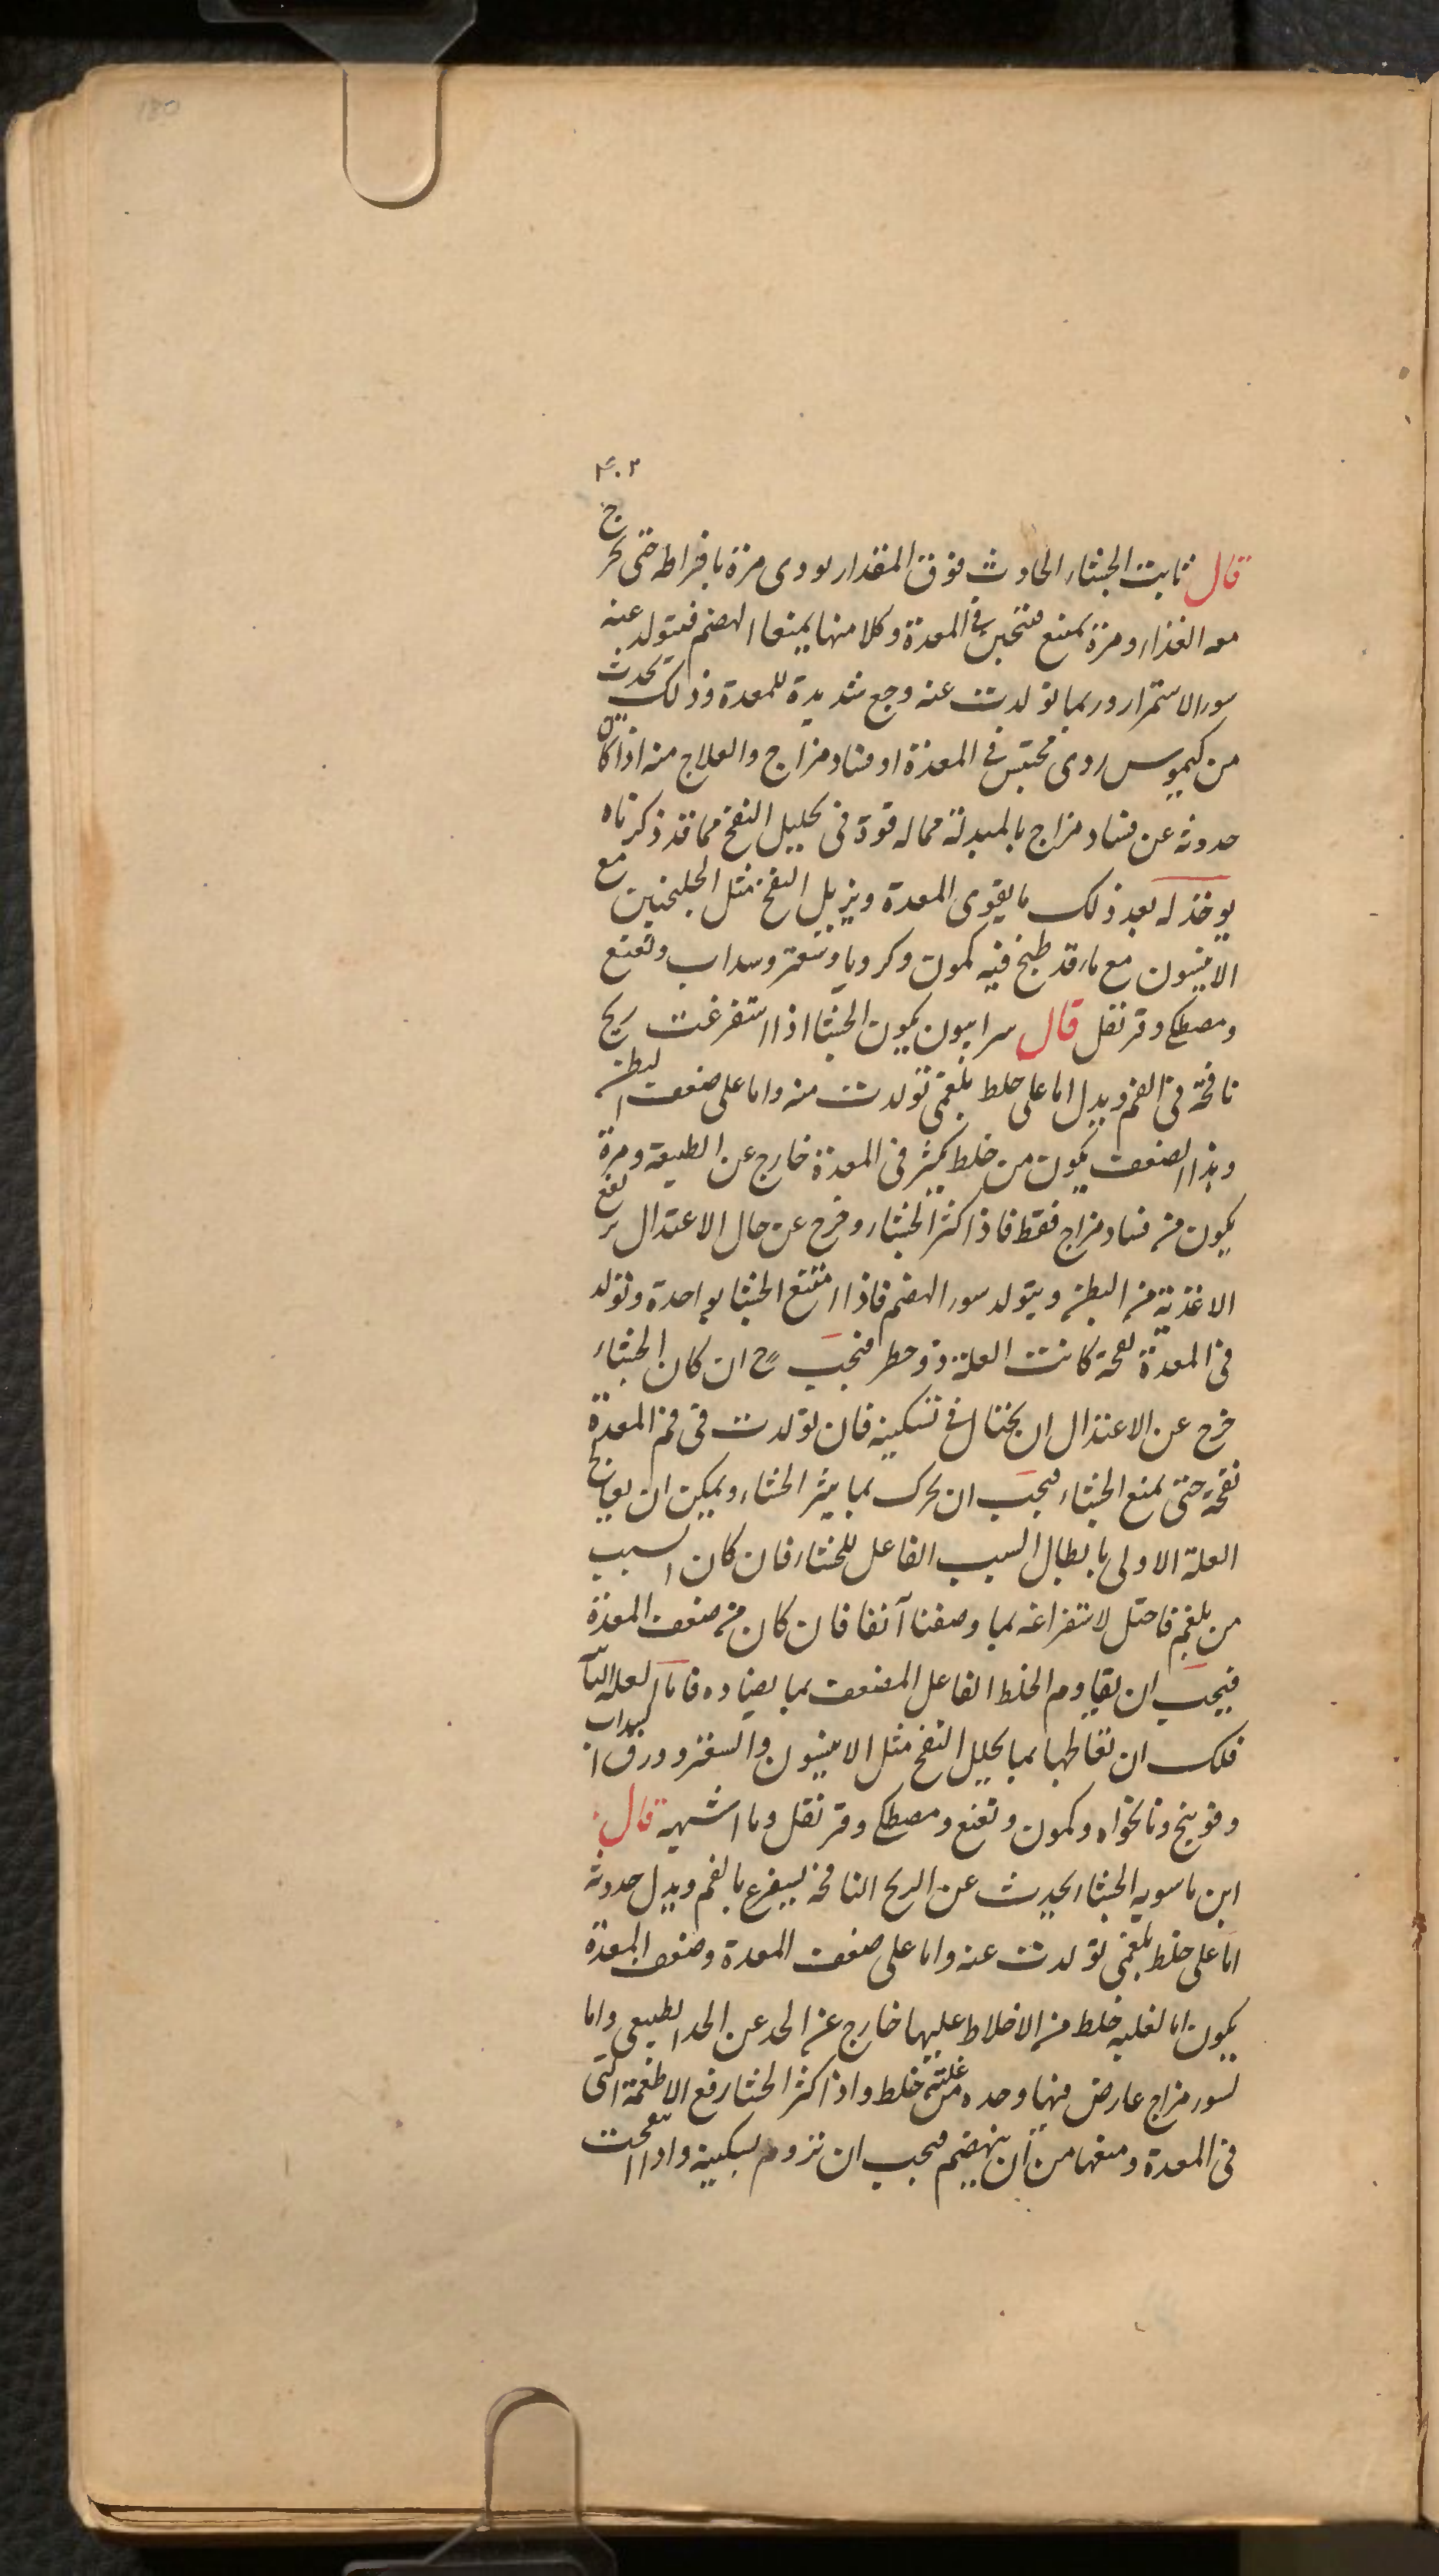 ۴۰۲
قال ثابت الجشاء الحادث فوق المقدار يودى مرة بافراطه حتى يخرج
معه الغذاء ومرة يمنع فيحتبس فى المعدة وكلا منها يمنعا الهضم فيتولد عنه
سوء الاستمراء وربما تولدت عنه وجع شديدة للمعدة وذلك يحدث
من كيموس ردى محتبس فى المعدة او فساد مزاج والعلاج منه اذا كان
حدوثه عن فساد مزاج بالمبدلة مما له قوة فى تحليل النفخ مما قد ذكرناه
يوخذ له بعد ذلك ما يقوى المعدة ويزيل النفخ مثل الجلنجبين مع
الانيسون مع ماء قد طبخ فيه كمون وكرويا وسعتر وسداب ونعنع
ومصطكى وقرنفل قال سرابيون يكون الجشا اذا استفرغت ريح
نافخة فى الفم ويدل اما على خلط بلغمى تولدت منه واما على ضعف البطن
وهذا الضعف يكون من خلط يكثر فى المعدة خارج عن الطبيعة ومرة
يكون من فساد مزاج فقط فاذا كثر الجشاء وخرج عن حال الاعتدال يرفع
الاغذية من البطن ويتولد سوء الهضم فاذا امتنع الجشا بواحدة وتولد
فى المعدة نفخة كانت العلة ذو خطر فيجب ح ان كان الجشاء
خرج عن الاعتدال ان يحتال فى تسكينه فان تولدت فى فم المعدة
نفخة حتى يمنع الجشاء فيجب ان يحرك بما يثير الجشاء ويمكن ان يعالج
العلة الاولى بابطال السبب الفاعل للجشاء فان كان السبب
من بلغم فاحتل لاستفراغه بما وصفنا آنفا فان كان من ضعف المعدة
فيجب ان يقاوم الخلط الفاعل المضعف بما يضاده فاما العلة
فلك ان تعالجها بما يحلل النفخ مثل الانيسون والسعتر وورق السداب
وفوينج ونانخواه وكمون ونعنع ومصطكى وقرنفل وما اشبهه قال
ابن ماسويه الجشا يحدث عن الريح النافخة يستفرغ بالفم ويدل حدوثه
اما على خلط بلغمى تولدت عنه واما على ضعف المعدة وضعف المعدة
يكون اما لغلبه خلط من الاخلاط عليها خارج عن الحد عن الحد الطبيعى واما
لسوء مزاج عارض فيها وحده من غلبة خلط واذا كثر الجشاء رفع الاطعمة التى
فى المعدة ومنعها من ان ينهضم فيجب ان تروم تسكينه واذا